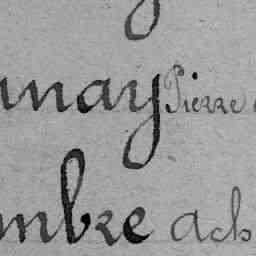 unay Pierre
mbre ach